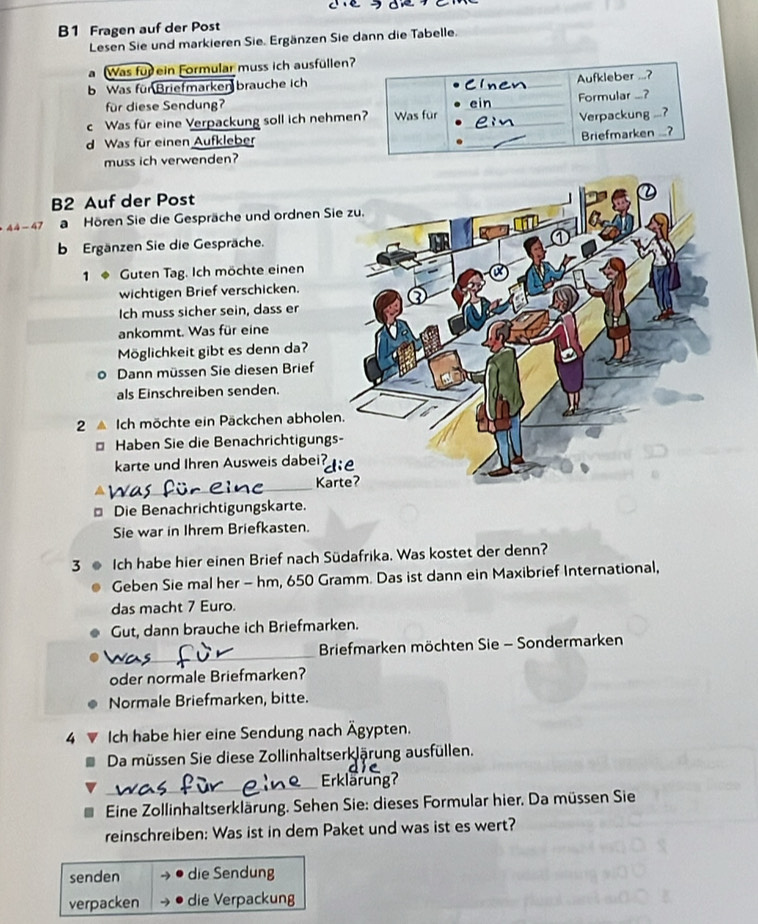 die → die + ein
B1 Fragen auf der Post
Lesen Sie und markieren Sie. Ergänzen Sie dann die Tabelle.
a Was für ein Formular muss ich ausfüllen?
b Was für Briefmarken brauche ich
für diese Sendung?
c Was für eine Verpackung soll ich nehmen?
d Was für einen Aufkleber
muss ich verwenden?
Was für
• einen Aufkleber ...?
• ein Formular ...?
• ein Verpackung ...?
• — Briefmarken ...?
B2 Auf der Post
44–47 a Hören Sie die Gespräche und ordnen Sie zu.
b Ergänzen Sie die Gespräche.
2
1
4
3
1 Guten Tag. Ich möchte einen
wichtigen Brief verschicken.
Ich muss sicher sein, dass er
ankommt. Was für eine
Möglichkeit gibt es denn da?
Dann müssen Sie diesen Brief
als Einschreiben senden.
2 Ich möchte ein Päckchen abholen.
Haben Sie die Benachrichtigungs-
karte und Ihren Ausweis dabei?
die
was für eine Karte?
Die Benachrichtigungskarte.
Sie war in Ihrem Briefkasten.
3 Ich habe hier einen Brief nach Südafrika. Was kostet der denn?
Geben Sie mal her – hm, 650 Gramm. Das ist dann ein Maxibrief International,
das macht 7 Euro.
Gut, dann brauche ich Briefmarken.
was für Briefmarken möchten Sie – Sondermarken
oder normale Briefmarken?
Normale Briefmarken, bitte.
4 Ich habe hier eine Sendung nach Ägypten.
Da müssen Sie diese Zollinhaltserklärung ausfüllen.
die
was für eine Erklärung?
Eine Zollinhaltserklärung. Sehen Sie: dieses Formular hier. Da müssen Sie
reinschreiben: Was ist in dem Paket und was ist es wert?
senden → • die Sendung
verpacken → • die Verpackung